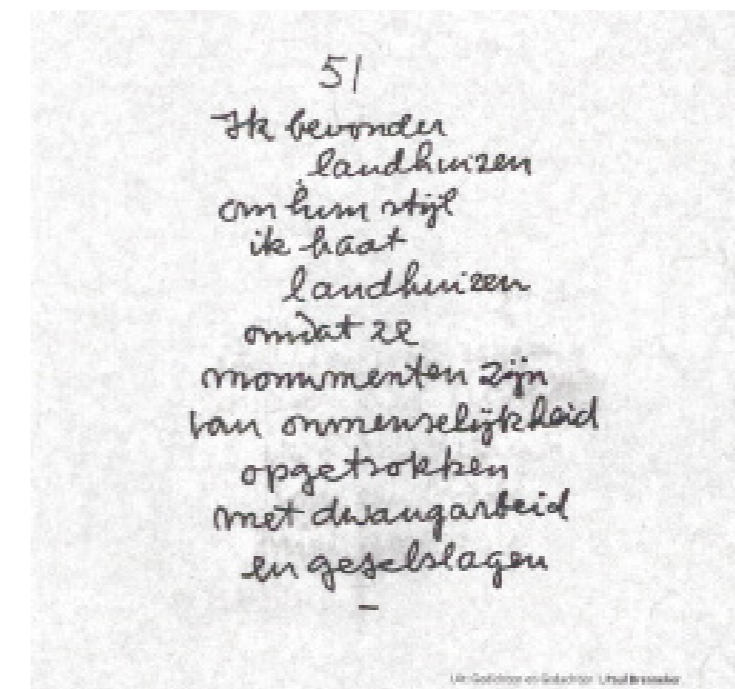 51
Ik bevonder
landhuizen
om hun stijl
ik haat
landhuizen
omdat ze
monumenten zijn
van onmenselijkheid
opgetrokken
met dwangarbeid
en geselslagen
–
Uit: Gedichten en Gedachten | Paul Brenneker